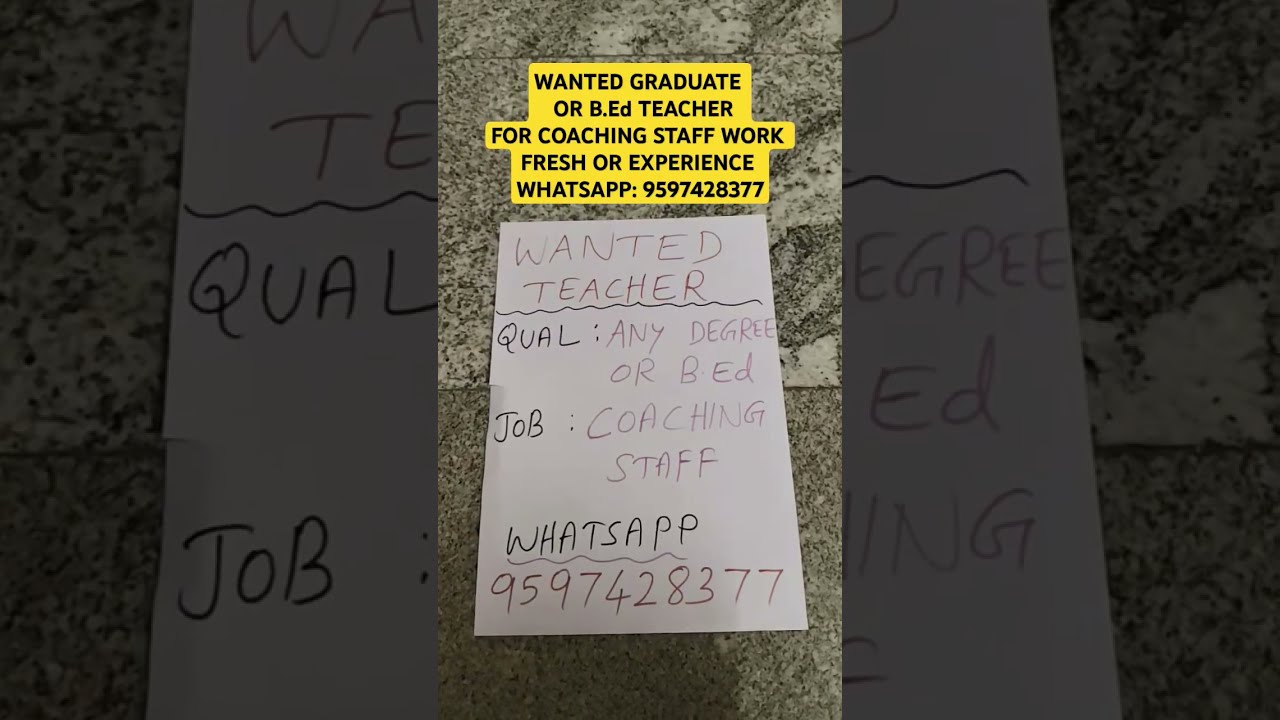 WANTED GRADUATE
OR B.Ed TEACHER
FOR COACHING STAFF WORK
FRESH OR EXPERIENCE
WHATSAPP: 9597428377
WANTED
TEACHER
QUAL : ANY DEGREE
OR B.Ed
JOB : COACHING
STAFF
WHATSAPP
9597428377
WA
TE
QUAL
JOB :
DEGREE
Ed
ING